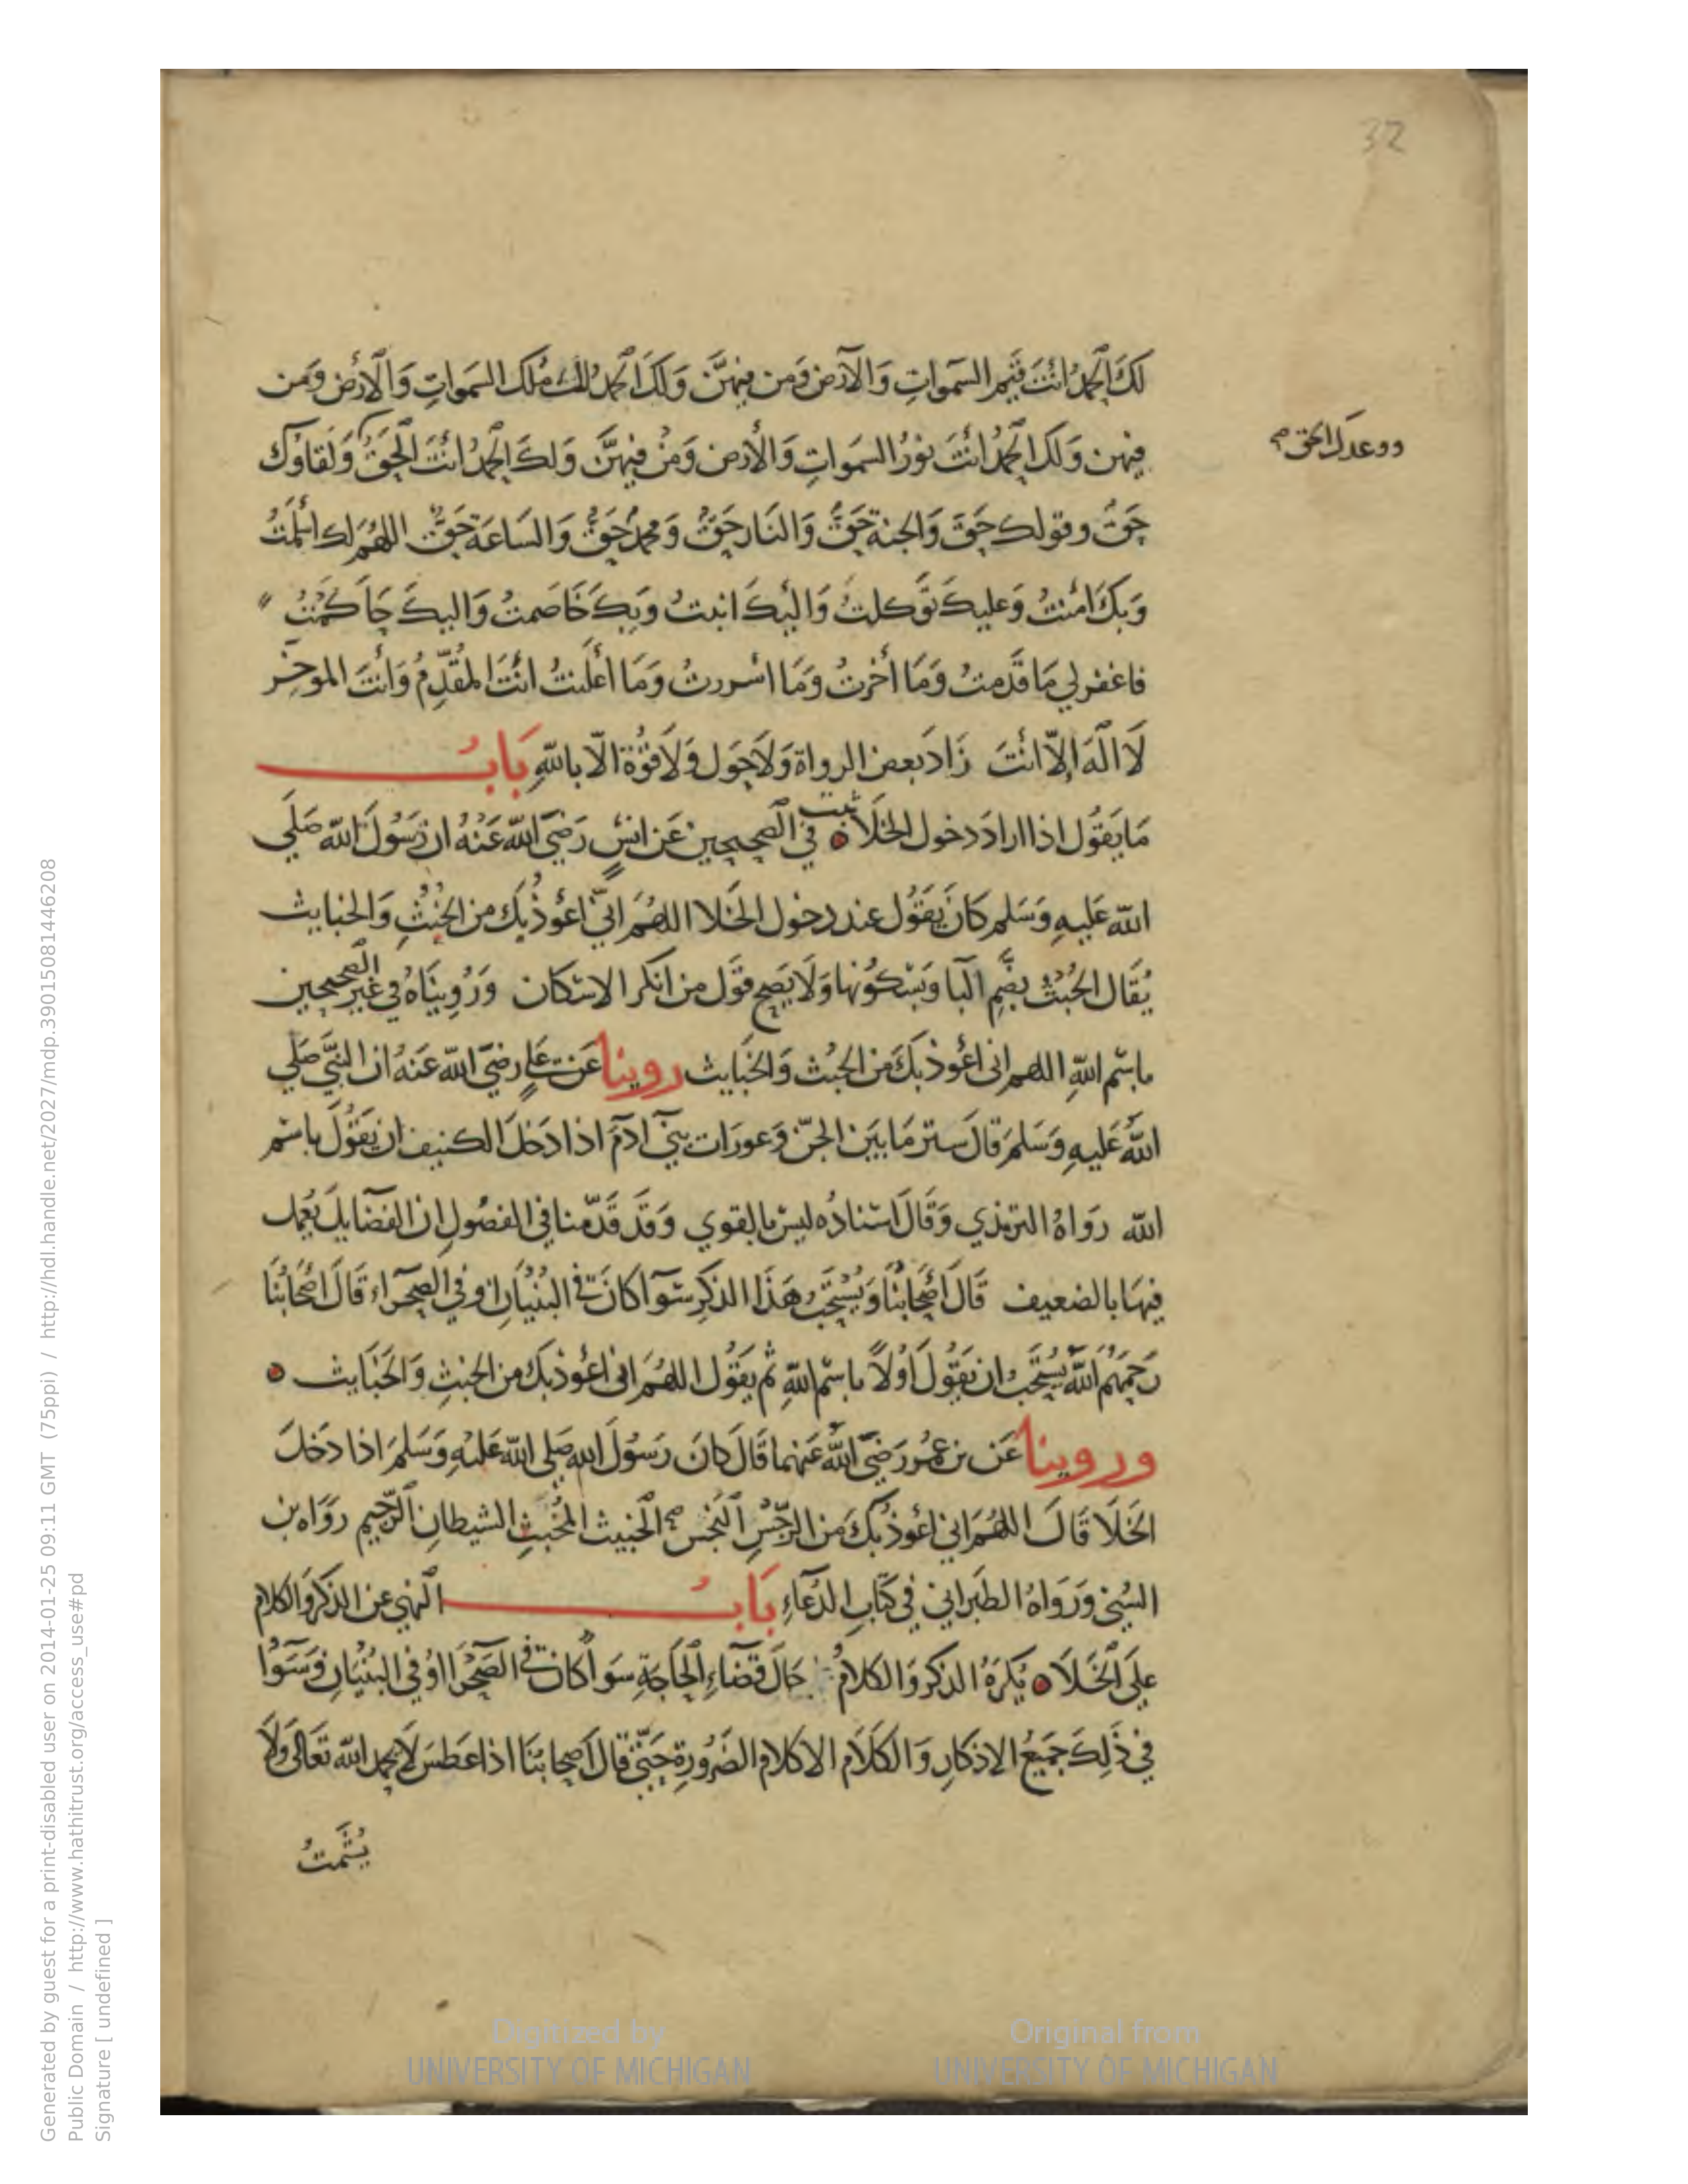 32
لَكَ الْحَمدُ انْتَ قَيِّم السَمواتِ وَالأرض وَمن فيهنَّ وَلكَ الحَمدُ لك مُلك السَمواتِ وَالأرْض وَمَن
فيهن وَلكَ الحَمْدُ انْتَ نورُ السَمواتِ وَالأرض وَمَنْ فيهنَّ وَلكَ الحمدُ انْتَ الْحَقُّ وَلقاؤكَ
ووعدك الحق صح
حَقٌّ وقولك حَقَّ وَالجنة حَقٌّ وَالنَار حَقٌّ وَمحمدٌ حَقٌّ وَالسَاعَة حَقٌّ اللهُمَ لك اسْلَمْتُ
وَبكَ امَنْتُ وَعليكَ تَوَّكلتُ وَاليْكَ انبتُ وَبِكَ خَاصَمتُ وَاليكَ حَاكَمْتُ
فاغفر لي مَا قَدَّمتُ وَمَا أخَّرتُ وَمَا اسْررتُ وَمَا أعْلَنتُ انْتَ المُقَدِّمُ وَأنْتَ الموخِّر
لَا الَهَ اِلّا انْتَ زَادَ بَعض الرواة وَلَا حَول وَلَا قُوَّة الّا باللّهِ بَابُ
مَا يَقُول اذا ارادَ دخول الخَلَا ثبت في الصحيحين عَن انسٍ رَضيَ اللّه عَنْهُ ان رَسُولَ اللّه صَلي
اللّه عَليهِ وَسَلم كانَ يَقُول عند دخول الخَلا اللهُمَ اِنّي اعُوْذُ بِكَ من الخُبُثِ وَالخبايث
يُقَال الخُبُثُ بضَّمِ البآ وَبسْكُونها وَلَا يَصح قَول من انكر الاسْكان وَرُوِينَاهُ في غَير الصحيحين
باسْم اللّهِ اللهم انى اعُوذ بكَ من الخُبُث وَالخَبايث روينا عَن عَليٍ رضيَ اللّه عَنهُ ان النَبيَّ صَلي
اللّهُ عَليهِ وَسَلمَ قَالَ ستر مَا بَيَن الجنّ وَعورَات بَنيَ ادَمَ اذا دَخَلَ الكنيف ان يَقُولَ باسْم
اللّه رَوَاهُ الترمذي وَقَالَ اسْنادُه ليسَ بالقوي وَقَد قَدّمنا في الفصُول ان الفضَايلَ يُعمل
فيهَا بالضعيف قَالَ أصْحَابنُا وَيُسْتَحَبُ هَذَا الذكِر سَوآ كانَ في البُنْيَانِ او في الصحَرآء قَالَ اصْحَابُنَا
رَحمَهُم اللّهُ يُسْتَحَّب ان يَقُولَ اَوْلاً باسْم اللّهِ ثم يقُول اللهُمَ انى اعُوذ بكَ من الخبثِ وَالخَبَايث
وروينا عَن بن عُمرُ رَضيَ اللّهُ عَنهما قَالَ كانَ رَسُولَ اللهِ صَلي اللّه عَليْهِ وَسَلمَ اذا دَخَلَ
الخَلَا قَالَ اللهُمَ اني اعُوذُ بكَ مِنَ الرِّجْسِ النَّجْس الخَبيث المُخبثِ الشيطانِ الرَّجيم رَوَاه بن
السُني وَرَوَاهُ الطَبَراني في كتَابِ الدُعَآءِ بَابُ النهي عن الذكر وَالكلام
عَلى الخَلَا يُكرَهُ الذكر وَالكلامُ حَالَ قضَآءِ الحَاجَةِ سَواً كان في الصَحْرَا اوْ في البُنْيَانِ وَسَوآ
في ذَلِكَ جَميعُ الاذكَارِ وَالكَلَام الا كلام الضَرُورةِ حَتّى قَالَ اَصحابُنَا اذا عَطسَ لَا يحمد اللّه تَعَالَى وَلَا
يُشَّمتُ
Digitized by
UNIVERSITY OF MICHIGAN
Original from
UNIVERSITY OF MICHIGAN
Generated by guest for a print-disabled user on 2014-01-25 09:11 GMT (75ppi) / http://hdl.handle.net/2027/mdp.39015081446208
Public Domain / http://www.hathitrust.org/access_use#pd
Signature [ undefined ]